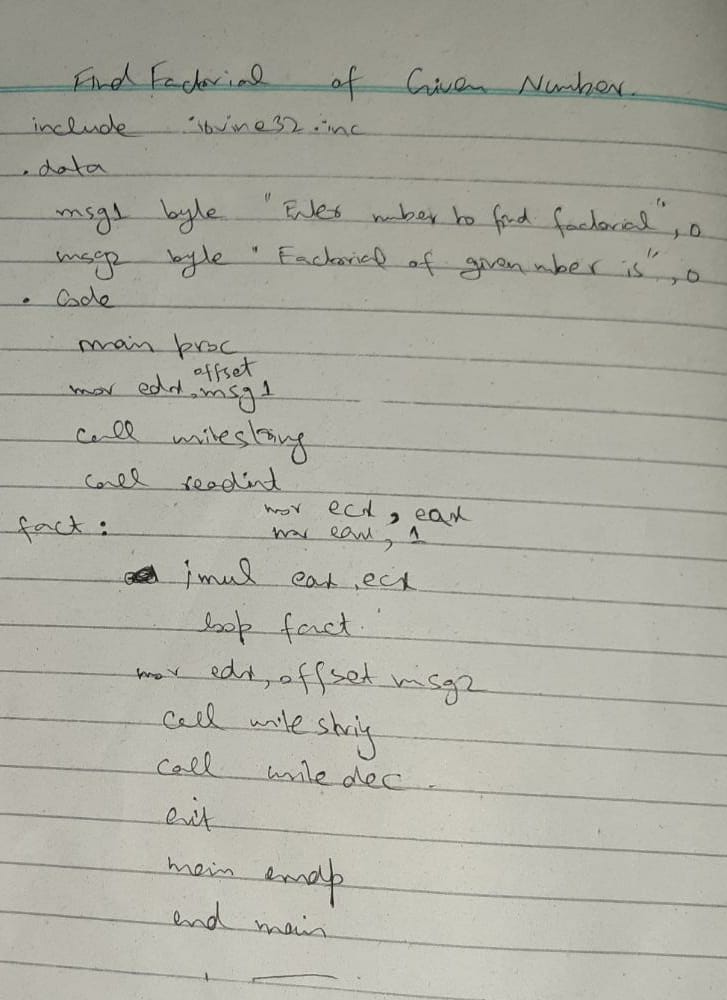 Find Factorial of Given Number.
include irvine32.inc
.data
msg1 byte "Enter number to find factorial", 0
msg2 byte "Factorial of given nber is", 0
.Code
main proc
offset
mov edx, msg1
call writestring
call readint
mov ecx, eax
fact: mov eax, 1
imul eax, ecx
loop fact.
mov edx, offset msg2
call write string
call write dec.
exit
main endp
end main